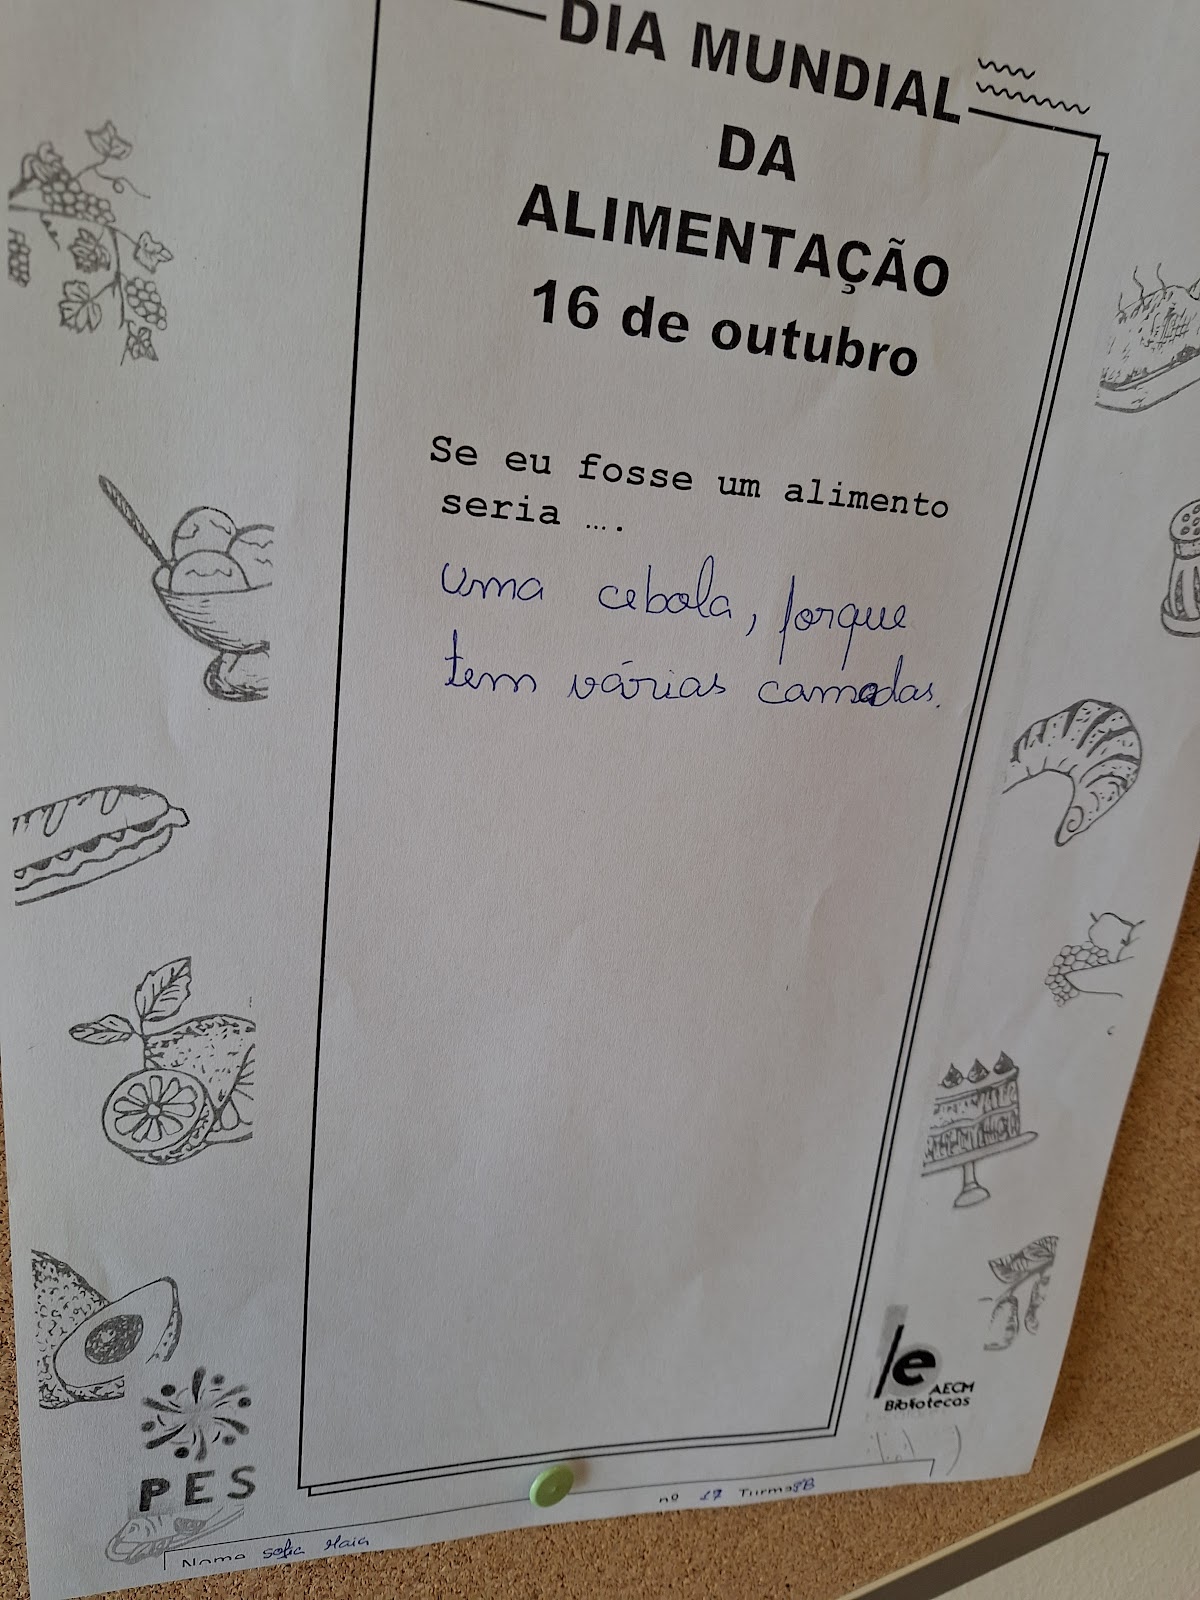 DIA MUNDIAL
DA
ALIMENTAÇÃO
16 de outubro
Se eu fosse um alimento
seria ….
uma cebola, porque
tem várias camadas.
/e
AECM
Bibliotecas
PES
nº 17 Turma 8B
Nome Sofia Maia